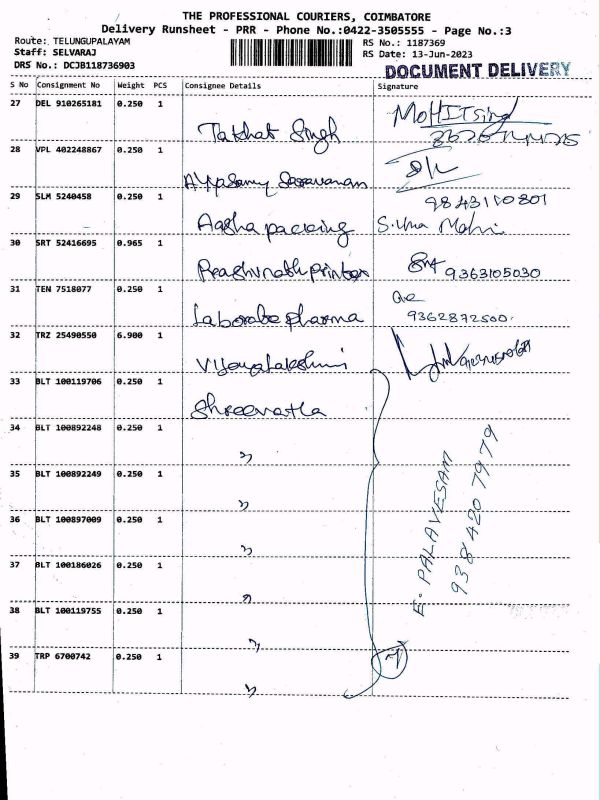 THE PROFESSIONAL COURIERS, COIMBATORE
Delivery Runsheet - PRR - Phone No.:0422-3505555 - Page No.:3
Route: TELUNGUPALAYAM
Staff: SELVARAJ
DRS No.: DCJB118736903
RS No.: 1187369
RS Date: 13-Jun-2023
DOCUMENT DELIVERY
S No Consignment No Weight PCS Consignee Details Signature
27 DEL 910265181 0.250 1 Singh MoHIT Sing
28 VPL 402248867 0.250 1 Saravanan
29 SLM 5240458 0.250 1 Aasha packing 9843110801
S. Uma
30 SRT 52416695 0.965 1 9363105030
31 TEN 7518077 0.250 1 pharma 9362872500
32 TRZ 25490550 6.900 1 Vijayalakshmi
33 BLT 100119706 0.250 1 Shreevatsa
34 BLT 100892248 0.250 1 "
35 BLT 100892249 0.250 1 "
36 BLT 100897009 0.250 1 "
37 BLT 100186026 0.250 1 "
38 BLT 100119755 0.250 1 "
39 TRP 6700742 0.250 1 " 7
E. PALAVESAM
938420 7979